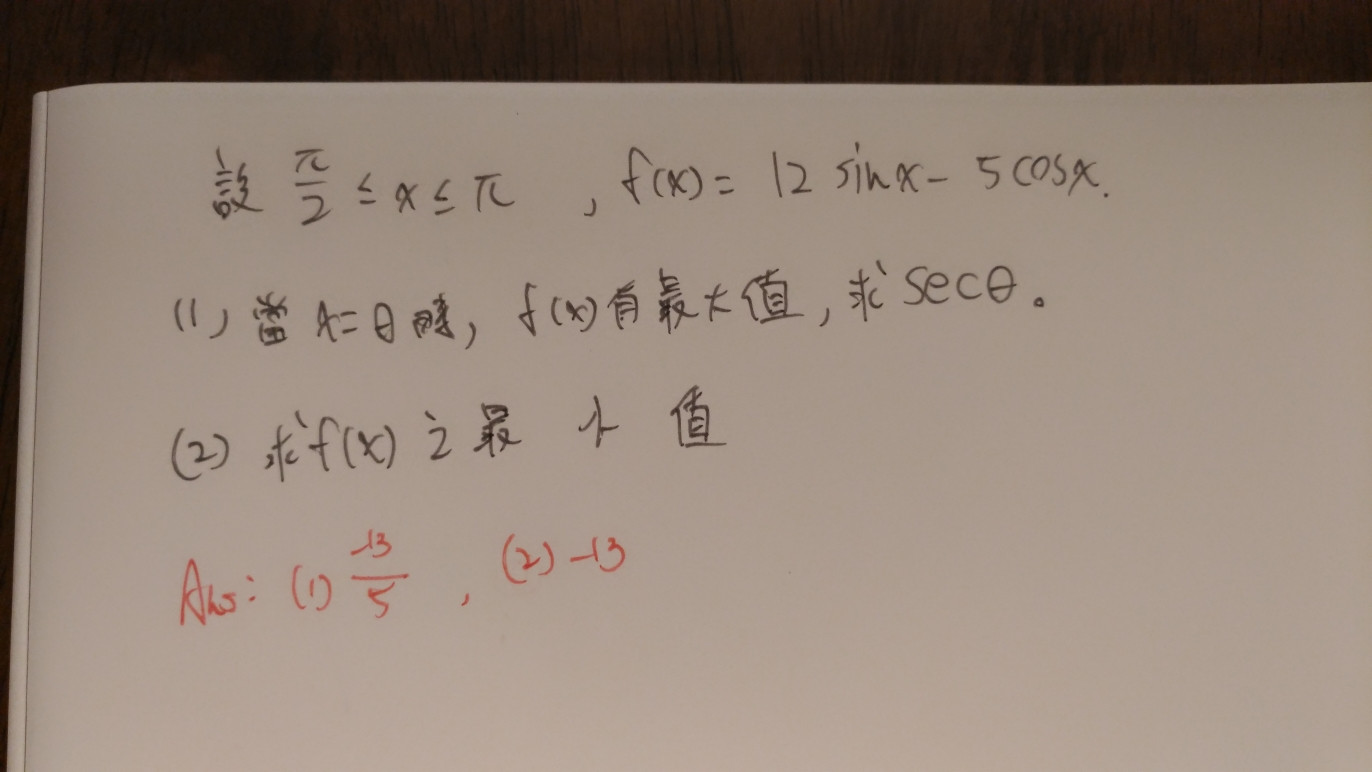 設 π/2 ≤ x ≤ π , f(x) = 12 sinx - 5 cosx.
(1) 當 x = θ 時, f(x)有最大值, 求 secθ。
(2) 求f(x)之最小值
Ans: (1) -13/5 , (2) -13